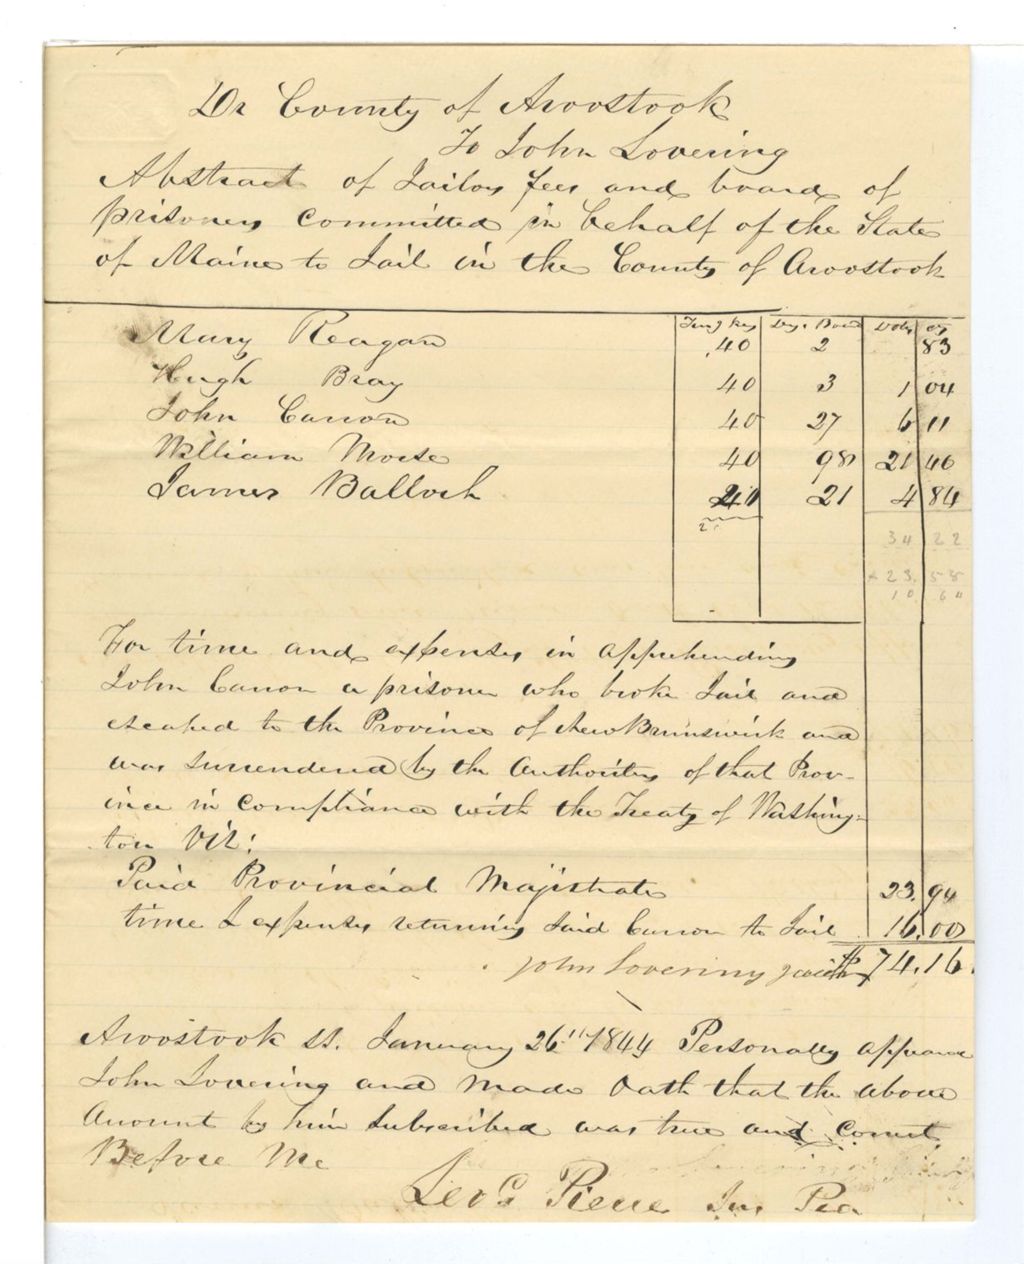 Dr County of Aroostook
To John Lovering
Abstract of Jailors fees and board of
prisoners committed in behalf of the State
of Maine to Jail in the County of Aroostook
Turng Key Days Board Dols cts
Mary Reagan .40 2 83
Hugh Bray 40 3 1 04
John Canon 40 27 6 11
William Morse 40 98 21 40
James Ballock 40 21 4 84
34 22
23.58
10 64
For time and expenses in apprehending
John Canon a prisoner who broke Jail and
escaped to the Province of New Brunswick and
was surrendered by the Authorities of that Prov-
ince in compliance with the Treaty of Washing-
ton Viz:
Paid Provincial Majistrate 23.94
time & expenses returning said Canon to Jail 16.00
John Lovering $74.16
Aroostook ss. January 26th 1844 Personally appeared
John Lovering and made Oath that the above
Amount by him subscribed was true and Correct
Before Me
Leod Pierce Jus Pea